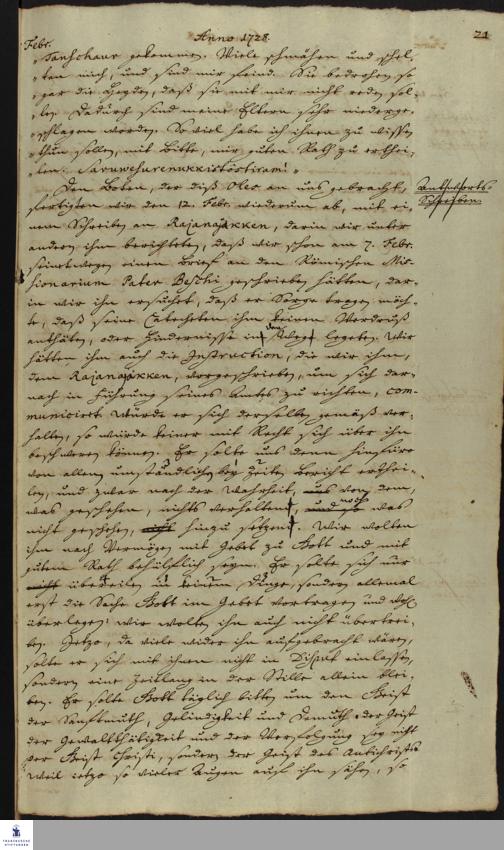 Anno 1728.
21
Febr.
Tanschaur gekommen. Viele schmähen und schel-
ten mich, und sind mir feind. Sie bedrohen so
gar die Heyden, daß sie mit mir nicht reden sol-
len. Dadurch sind meine Eltern sehr niederge-
schlagen worden. So viel habe ich ihnen zu wissen
thun sollen, mit Bitte, mir guten Rath zu erthei-
len.
Den Boten, der diß Oles an uns gebracht,
fertigten wir den 12. Febr. wiederum ab, mit ei-
nem Schreiben an Rajanaikken, darin wir unter
andern ihm berichteten, daß wir schon am 7. Febr.
seinetwegen einen Brief an den Römischen Mis-
sionarium Pater Beschi geschrieben hätten, dar-
in wir ihn ersuchet, daß er Sorge tragen möch-
te, daß seine Catecheten ihm keinen Verdruß
anthäten, oder Hindernisse in den Weg legeten. Wir
hätten ihm auch die Instruction, die wir ihm,
dem Rajanaikken, vorgeschrieben, um sich dar-
nach in Führung seines Amtes zu richten, com-
municiret. Würde er sich derselben gemäß ver-
halten, so würde keiner mit Recht sich über ihn
beschweren können. Er solte uns denn hinführo
von allem umständlich bey Zeiten Bericht erthei-
len, und zwar nach der Wahrheit, von dem,
was geschehen, nichts verhalten, noch was
nicht geschehen, hinzu setzen. Wir wolten
ihm nach Vermögen mit Gebet zu Gott und mit
gutem Rath behülflich seyn. Er solte sich nur
nicht übereilen in keinem Dinge, sondern allemal
erst die Sache Gott im Gebet vortragen und wohl
überlegen: wir wolten ihn auch nicht übertrei-
ben. Jetzo, da viele wider ihn aufgebracht wären,
solte er sich mit ihnen nicht in Disput einlassen,
sondern eine Zeitlang in der Stille allein blei-
ben. Er solte Gott täglich bitten um den Geist
der Sanftmuth, Gelindigkeit und Demuth: der Geist
der Gewaltthätigkeit und der Verfolgung sey nicht
der Geist Christi, sondern der Geist des Antichrists.
Weil jetzo so vieler Augen auf ihn sähen, so
Antworts-
Schreiben.
FRANCKESCHE
STIFTUNGEN